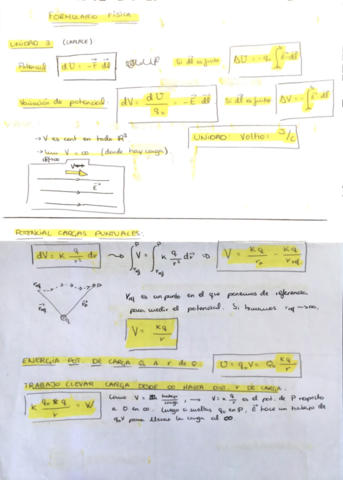 FORMULARIO FÍSICA
UNIDAD 3
Potencial dU = -F dl Si dl es finito ΔU = -q₀∫E dl
Variación de potencial: dV = dU/q₀ = -E dl Si dl es finito ΔV = -∫E dl
→ V es cont en todo R³ UNIDAD: Voltio: J/C
→ V = ∞ (donde hay carga)
E
POTENCIAL CARGAS PUNTUALES:
dV = K q/r² dr → ∫dV = ∫K q/r² dr ⇒ V = Kq/r_p - Kq/r_ref
r_ref es un punto en el que ponemos de referencia
para medir el potencial. Si tenemos r_ref → ∞,
V = Kq/r
ENERGÍA POT. DE CARGA Q₀ A r DE Q. U = q₀V = q₀ Kq/r
TRABAJO LLEVAR CARGA DESDE ∞ HASTA DIST. r DE CARGA.
K q₀ q/r = W Como V = trabajo/carga → V = K q/r es el pot. de P respecto
a 0 en ∞. Luego si sueltas q₀ en P, E hace un trabajo de
q₀V para llevar la carga al ∞.